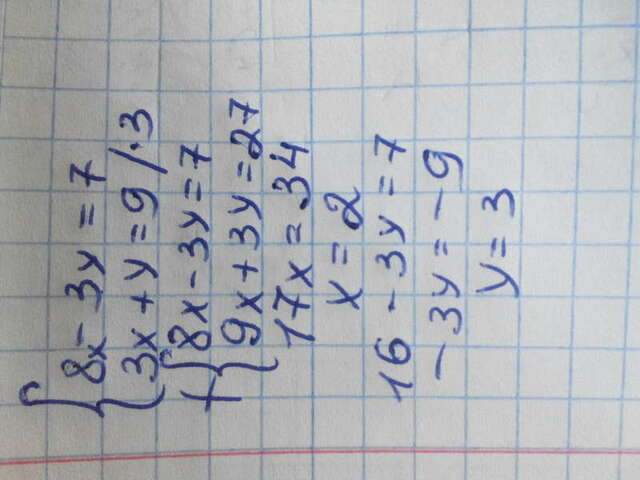 8x - 3y = 7
3x + y = 9 /·3
+ 8x - 3y = 7
9x + 3y = 27
17x = 34
x = 2
16 - 3y = 7
-3y = -9
y = 3